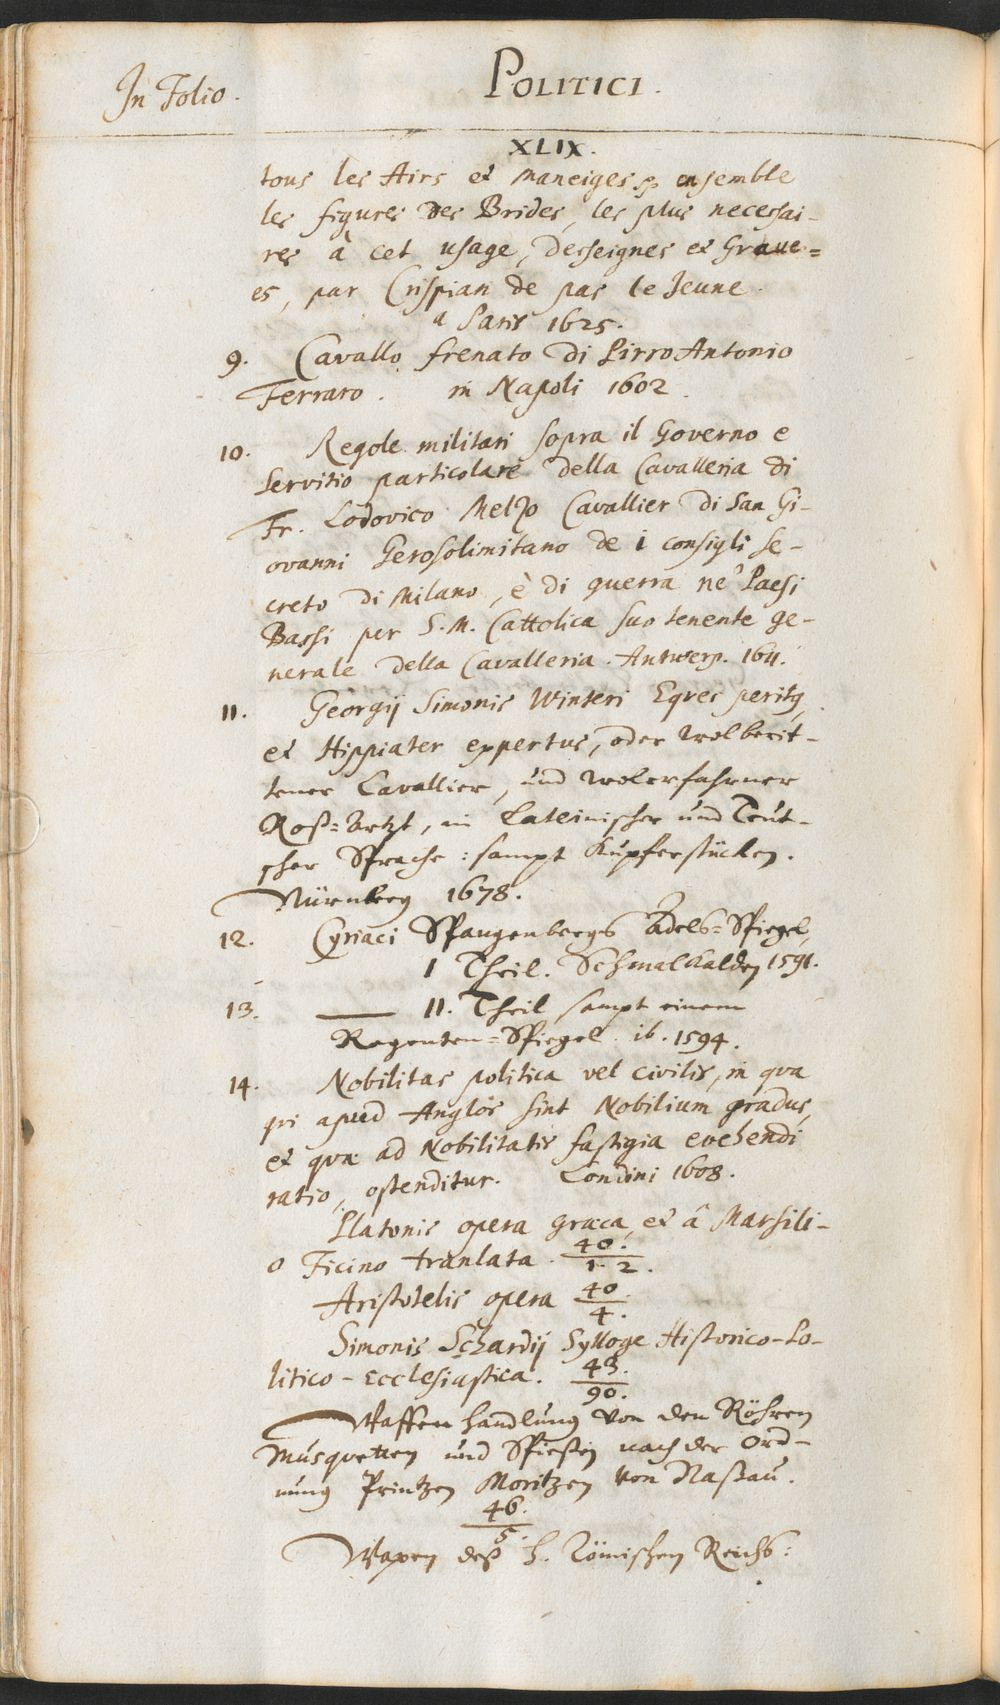 In Folio.
POLITICI.
XLIX.
tous les Airs et Maneiges & ensemble
les figures des Brides, les plus necessai-
res à cet usage, desseignes et Graue=
es, par Crispian de pas le Jeune.
a Paris 1625.
9. Cavallo frenato di Pirro Antonio
Ferraro. in Napoli 1602.
10. Regole militari sopra il Governo e
servitio particolare della Cavalleria di
Fr. Lodovico Melzo Cavallier di San Gi-
ovanni Gerosolimitano de i consigli se-
creto di Milano, è di guerra ne' Paesi
Bassi per S. M. Cattolica suo tenente ge-
nerale della Cavalleria. Antwerp. 1611.
11. Georgij Simonis Winteri Eques peritg,
et Hippiater expertus, oder wolberit-
tener Cavallier, und wolerfahrner
Roß=Artzt, in Lateinischer und Teut-
scher Sprache: sampt Kupferstücken.
Nürnberg 1678.
12. Cyriaci Spangenbergs Adels=Spiegel,
I Theil. Schmalkalden 1591.
13. —— II. Theil sampt einem
Regenten=Spiegel. ib. 1594.
14. Nobilitas politica vel civilis, in qva
qvi apud Anglos sint Nobilium gradus,
et qvæ ad Nobilitatis fastigia evehendi
ratio, ostenditur. Londini 1608.
Platonis opera græca, et â Marsili-
o Ficino tranlata. 40./1. 2.
Aristotelis opera 40/4.
Simonis Schardij Sylloge Historico-Po-
litico-Ecclesiastica. 43./90.
Waffenhandlung von den Röhren
Musquetten und Spießen nach der Ord-
nung Printzen Moritzen von Naßau.
46./5.
Wapen deß H. Römischen Reichs: